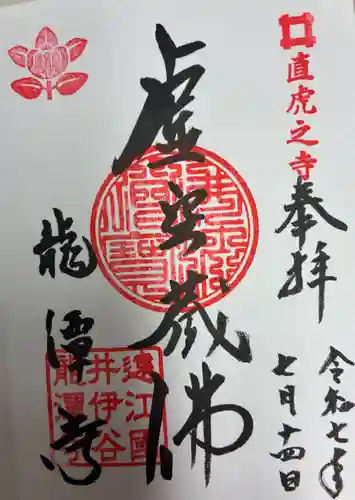 直虎之寺
奉拝
令和七年
七月十四日
虚空蔵佛
龍潭寺
遠江國
井伊谷
龍潭寺